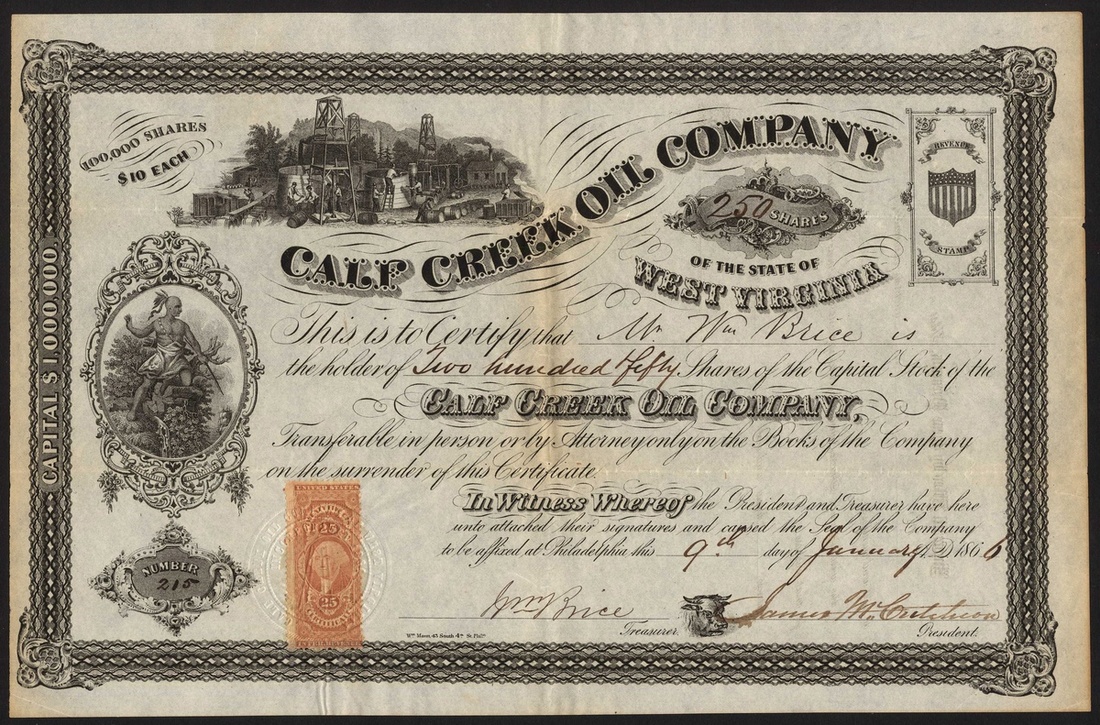 100,000 SHARES
$10 EACH
CALF CREEK OIL COMPANY
250 SHARES
OF THE STATE OF
WEST VIRGINIA
REVENUE
STAMP
CAPITAL $1,000,000.
This is to Certify that Mr. Wm Brice is
the holder of Two hundred fifty Shares of the Capital Stock of the
CALF CREEK OIL COMPANY,
Transferable in person or by Attorney only on the Books of the Company
on the surrender of this Certificate.
In Witness Whereof the President and Treasurer have here
unto attached their signatures and caused the Seal of the Company
to be affixed at Philadelphia this 9th day of January 1866
NUMBER
215
UNITED STATES
25
25
CERTIFICATE
Wm Brice
Treasurer.
James McCutcheon
President.
Wm Mann, 43 South 4th St. Phila.